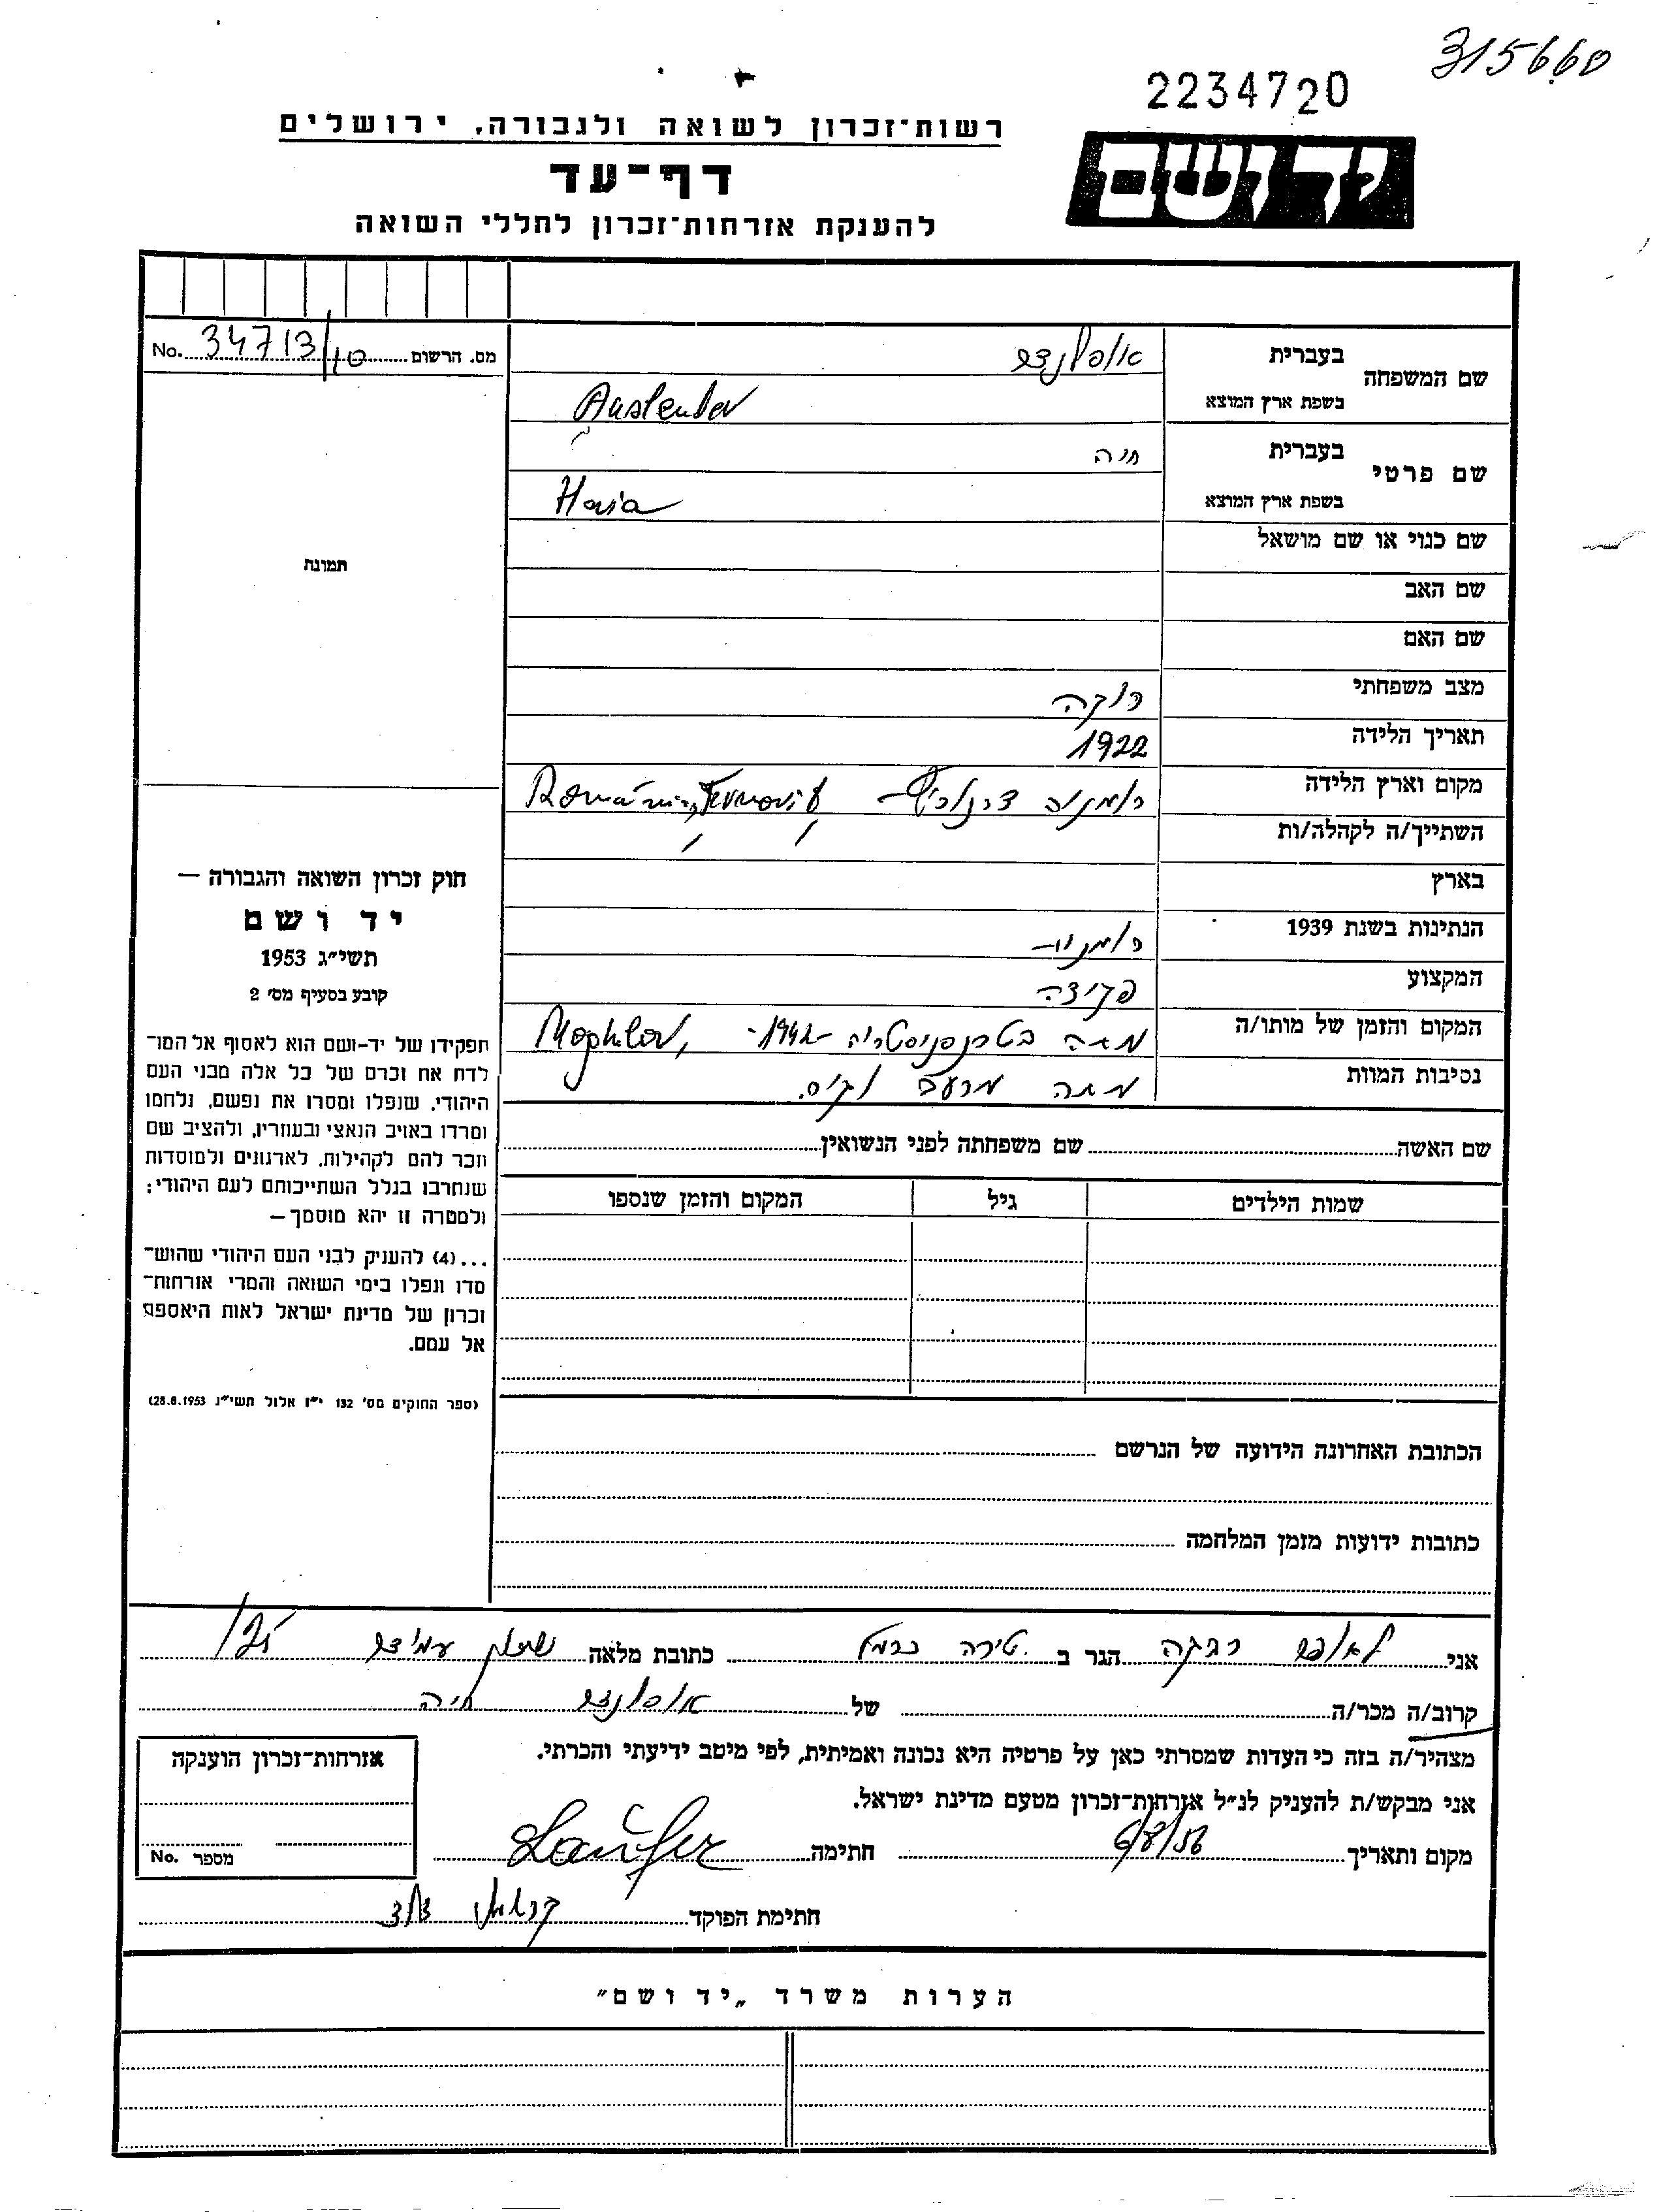 315660
2234720
רשות־זכרון לשואה ולגבורה, ירושלים
יד ושם
דף־עד
להענקת אזרחות־זכרון לחללי השואה
No. 34713/10 מס. הרשום
שם המשפחה בעברית
בשפת ארץ המוצא Auslender
שם פרטי בעברית חיה
בשפת ארץ המוצא Haia
שם כנוי או שם מושאל
שם האב
שם האם
מצב משפחתי רוקה
תאריך הלידה 1922
מקום וארץ הלידה רומניה
השתייך/ה לקהלה/ות
בארץ
הנתינות בשנת 1939
המקצוע פקידה
המקום והזמן של מותו/ה מתה בטרנסניסטריה Moghilov,
נסיבות המוות מתה מרעב
תמונה
חוק זכרון השואה והגבורה —
יד ושם
תשי״ג 1953
קובע בסעיף מס׳ 2
תפקידו של יד-ושם הוא לאסוף אל המו־
לדת את זכרם של כל אלה מבני העם
היהודי, שנפלו ומסרו את נפשם, נלחמו
ומרדו באויב הנאצי ובעוזריו, ולהציב שם
וזכר להם לקהילות, לארגונים ולמוסדות
שנחרבו בגלל השתייכותם לעם היהודי;
ולמטרה זו יהא מוסמך—
...(4) להענק לבני העם היהודי שהוש־
מדו ונפלו בימי השואה והמרי אזרחות־
זכרון של מדינת ישראל לאות היאספם
אל עמם.
(ספר החוקים מס׳ 132 י״ז אלול תשי״ג 28.8.1953)
שם האשה שם משפחתה לפני הנשואין
שמות הילדים גיל המקום והזמן שנספו
הכתובת האחרונה הידועה של הנרשם
כתובות ידועות מזמן המלחמה
אני לאופר רבקה הגר ב טירה כרמל כתובת מלאה שיכון עמידר
קרוב/ה מכר/ה של חיה
מצהיר/ה בזה כי העדות שמסרתי כאן על פרטיה היא נכונה ואמיתית, לפי מיטב ידיעתי והכרתי.
אני מבקש/ת להעניק לנ״ל אזרחות־זכרון מטעם מדינת ישראל.
מקום ותאריך 6/8/56 חתימה Laufer
חתימת הפוקד
אזרחות־זכרון הוענקה
No. מספר
הערות משרד „יד ושם"